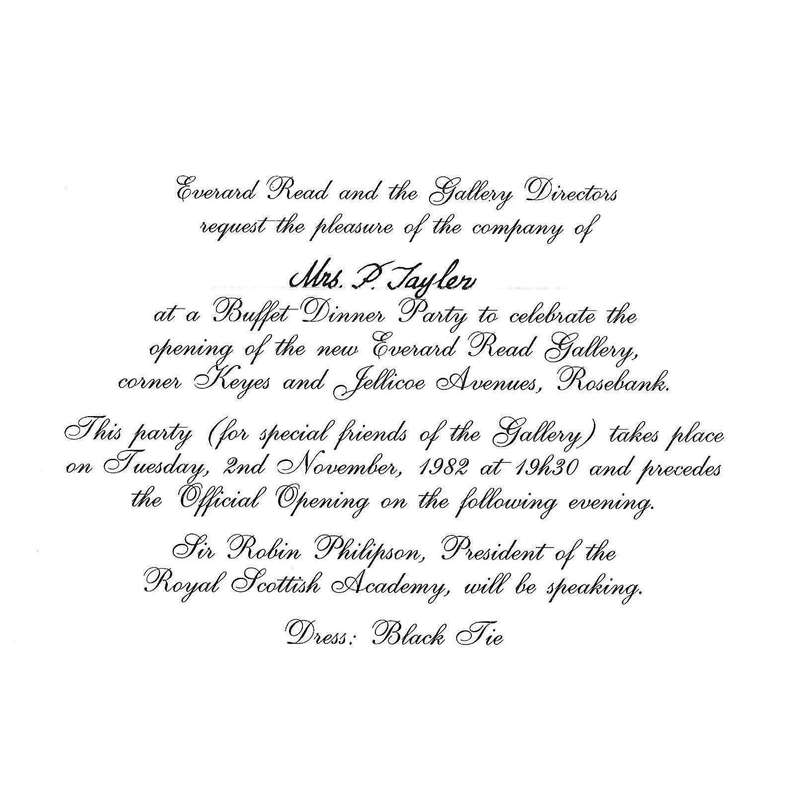 Everard Read and the Gallery Directors
request the pleasure of the company of
Mrs. P. Tayler
at a Buffet Dinner Party to celebrate the
opening of the new Everard Read Gallery,
corner Keyes and Jellicoe Avenues, Rosebank.
This party (for special friends of the Gallery) takes place
on Tuesday, 2nd November, 1982 at 19h30 and precedes
the Official Opening on the following evening.
Sir Robin Philipson, President of the
Royal Scottish Academy, will be speaking.
Dress: Black Tie